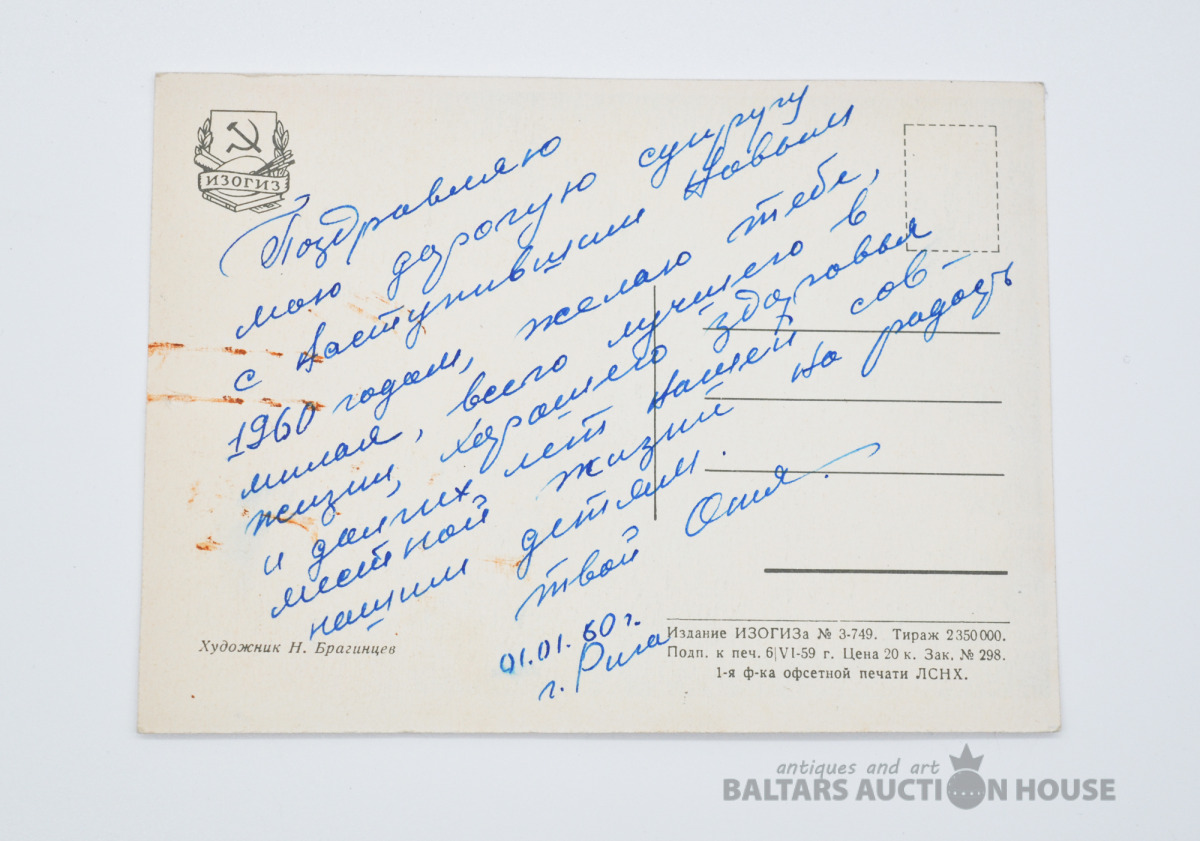 ИЗОГИЗ
Поздравляю
мою дорогую супругу
с наступившим Новым
1960 годом, желаю тебе,
милая, всего лучшего в
жизни, хорошего здоровья
и долгих лет нашей сов-
местной жизни на радость
нашим детям.
твой
01.01.60 г.
г. Рига
Художник Н. Брагинцев
Издание ИЗОГИЗа № 3-749. Тираж 2350000.
Подп. к печ. 6|VI-59 г. Цена 20 к. Зак. № 298.
1-я ф-ка офсетной печати ЛСНХ.
antiques and art
BALTARS AUCTION HOUSE